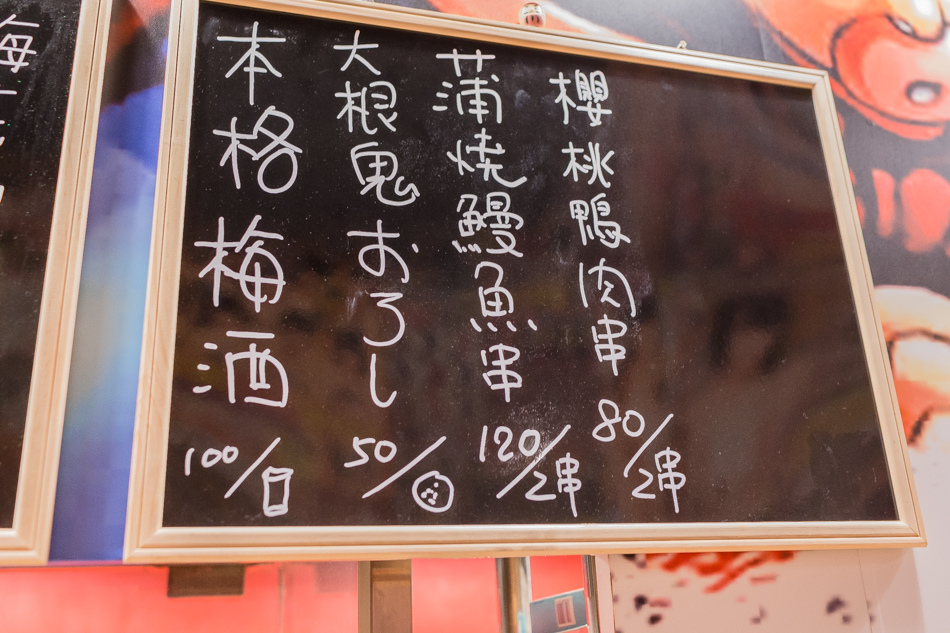 櫻桃鴨肉串 80/2串
蒲燒鰻魚串 120/2串
大根鬼おろし 50/
本格梅酒 100/
梅